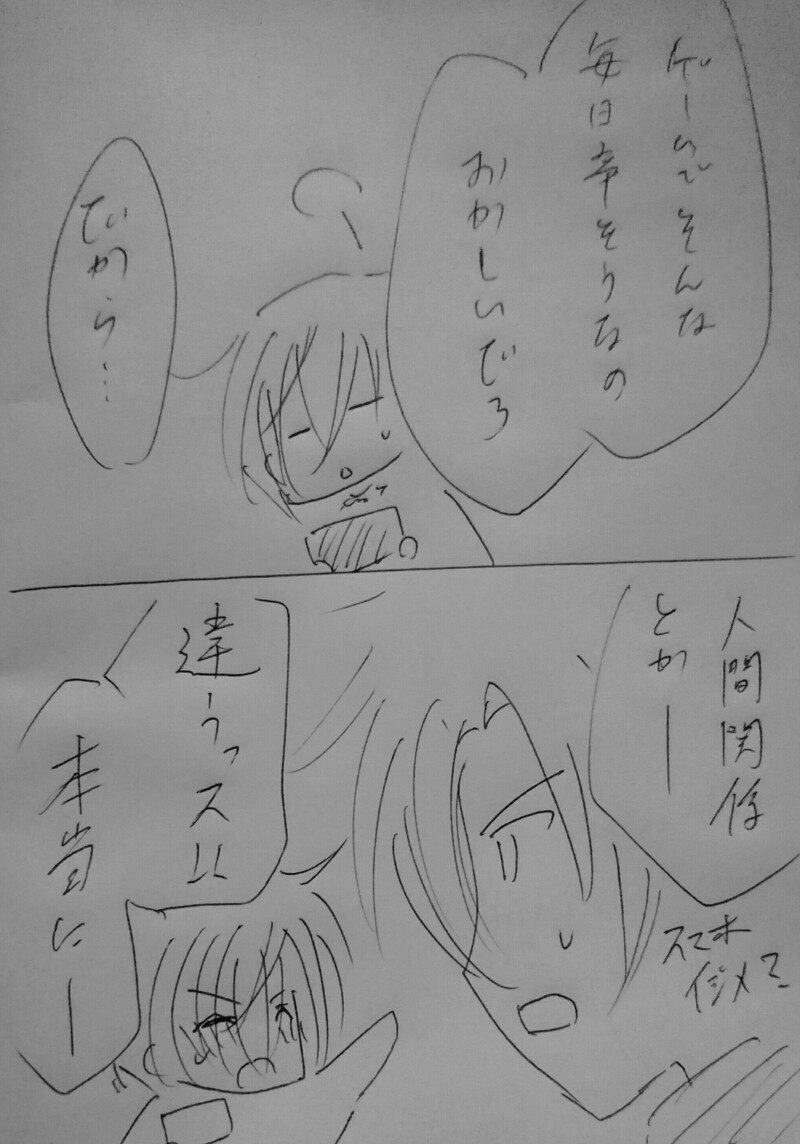 ゲームでそんな
毎日幸そうなの
おかしいだろ
だから…
人間関係
とかー
スマホ
イジメ?
違うっス!!
本当にー